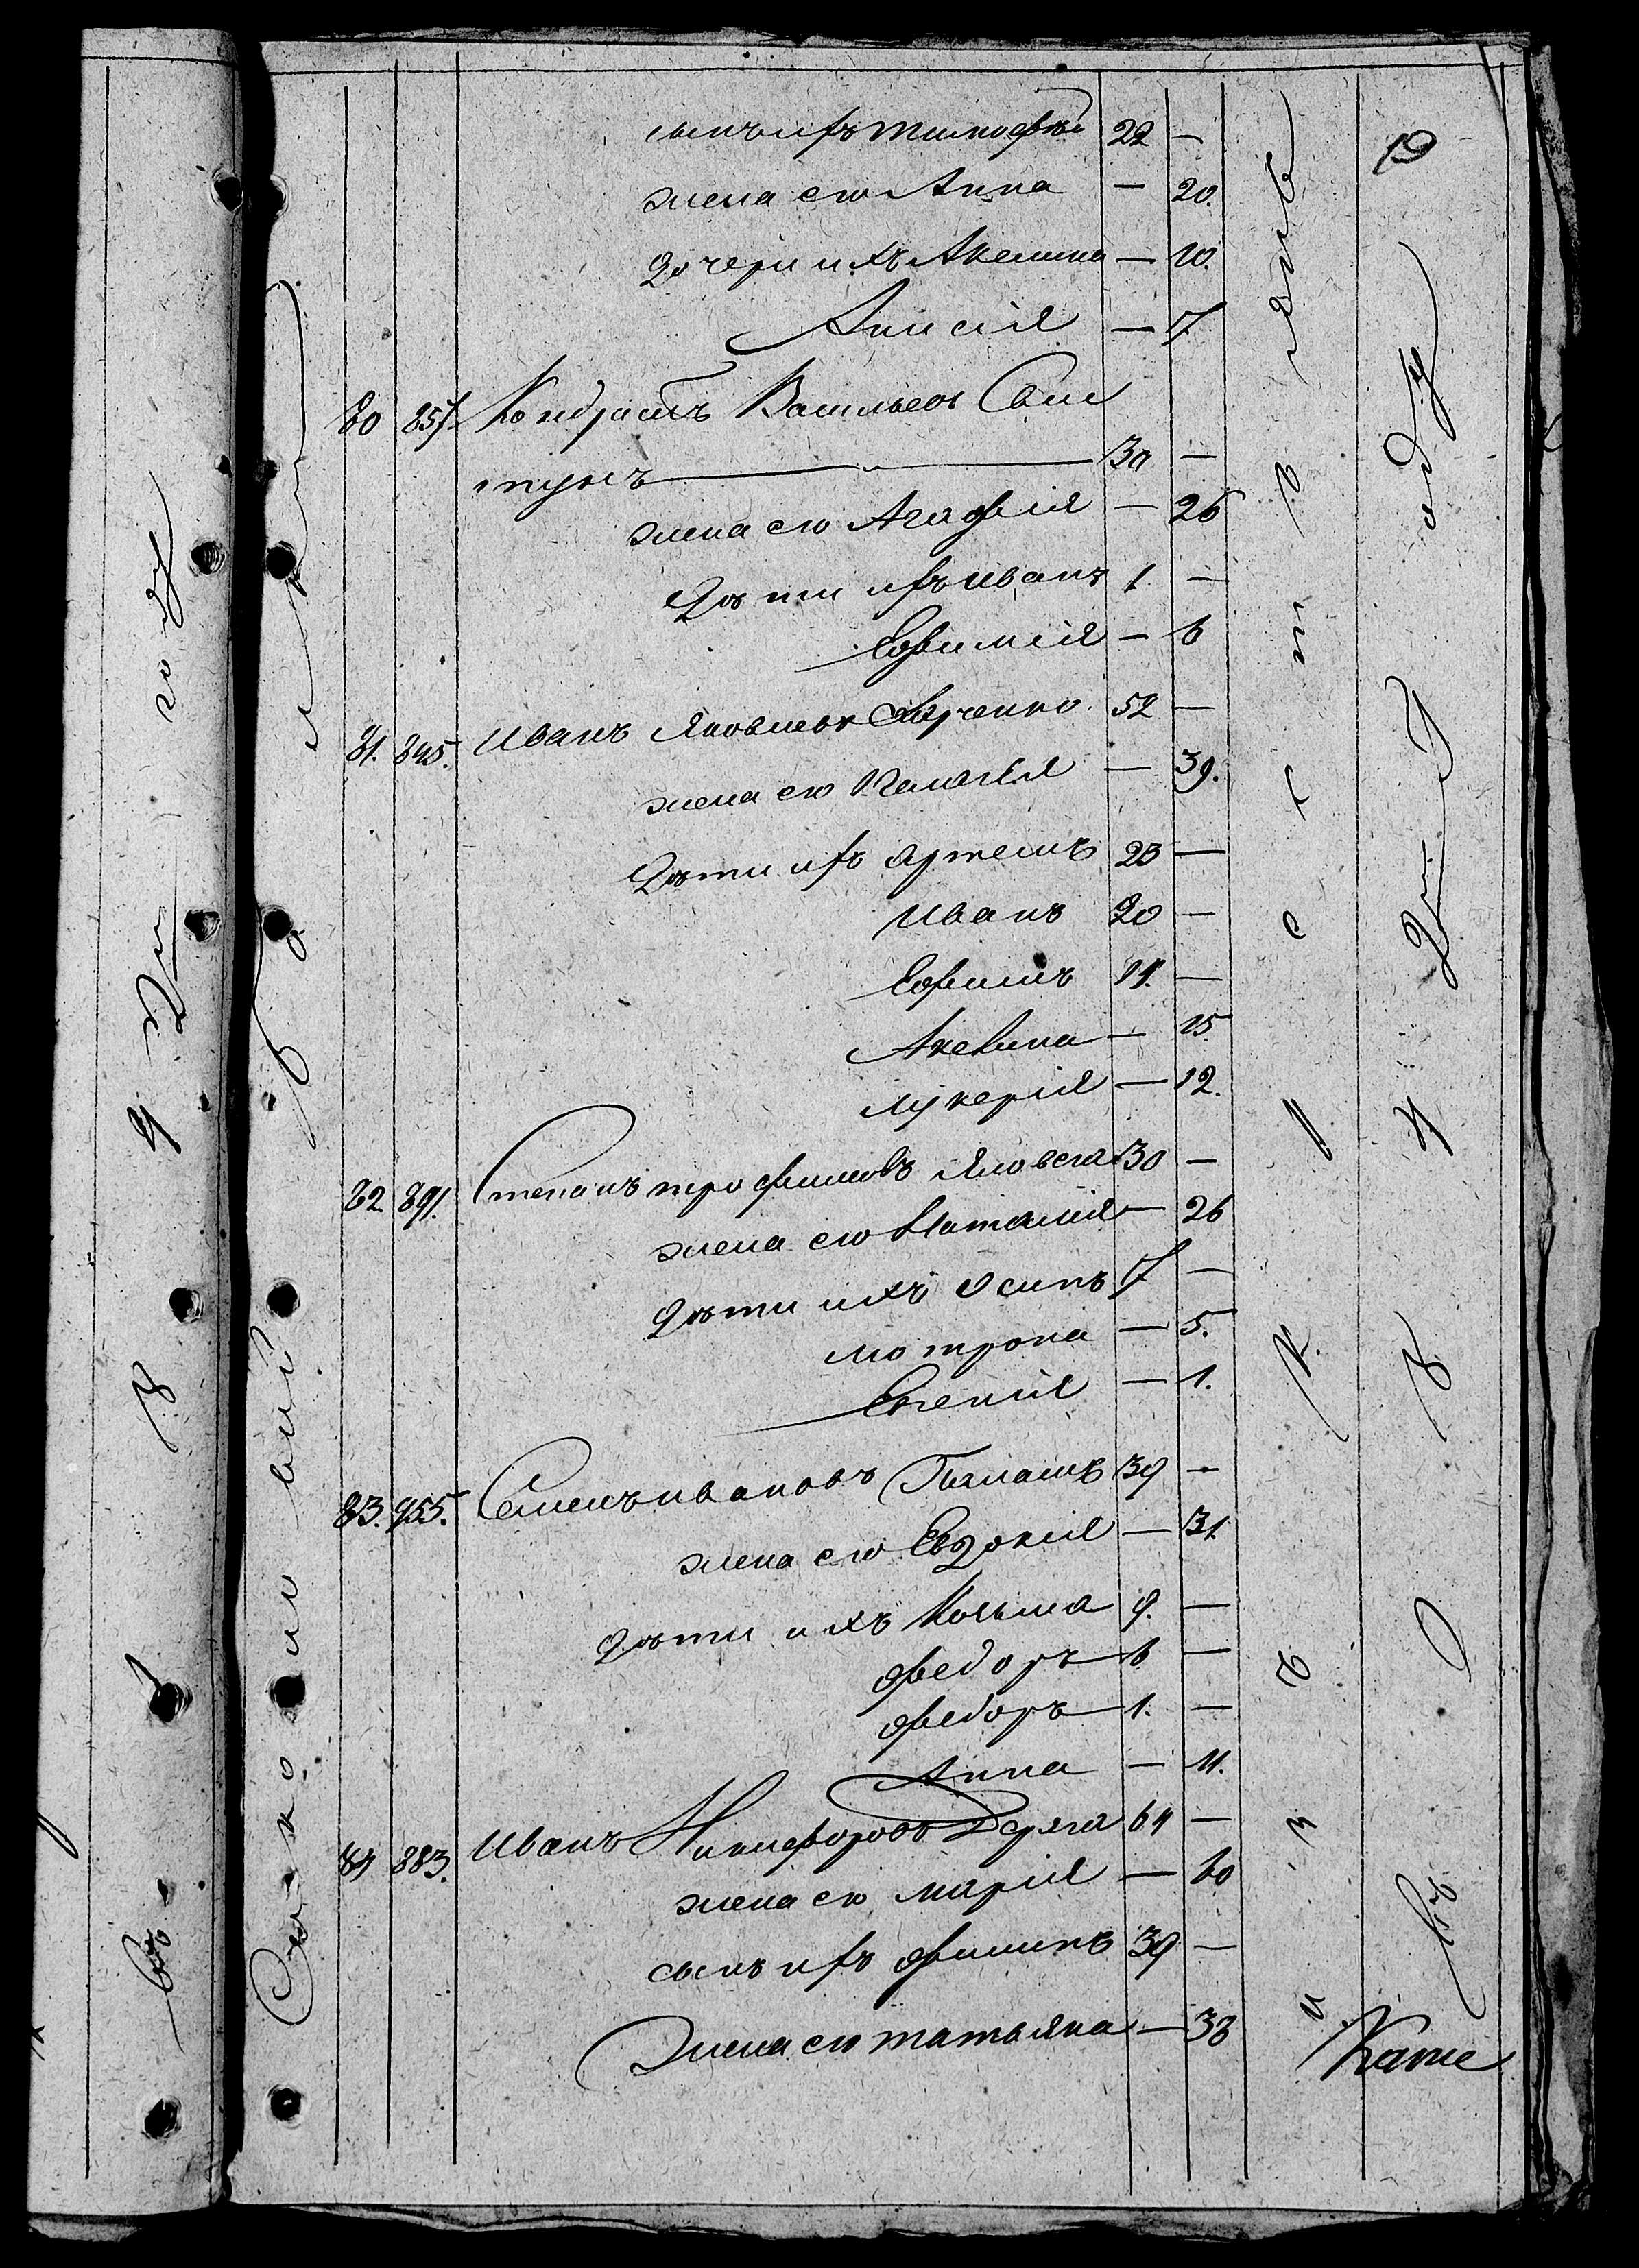 сынъ ихъ тимофей 22 —
жена его Анна — 20.
дочери ихъ Акелина — 10.
Анисія — 7
80 857 Кондратъ Васильевъ Сви
тунъ 30 —
жена его Агафія — 26
дѣти ихъ иванъ 1 —
Ефимія — 6
81. 845. иванъ Яковлевъ 52 —
жена его Пелагѣя — 39.
дѣти ихъ Артемъ 23 —
иванъ 20 —
Ефимъ 11. —
Акелина — 15.
лукерія — 12.
82 891. Степанъ трофимовъ Яловега 30 —
жена его Наталія — 26
дѣти ихъ Осипъ 7 —
мотрона — 5.
Евгенія — 1.
83. 955. Семенъ ивановъ 39 —
жена его Евдокія — 31.
дѣти ихъ Козьма 9. —
федоръ 6 —
федоръ 1. —
Анна — 11.
84 883. иванъ Никифоровъ Деряга 64 —
жена его марія — 60
сынъ ихъ филипъ 39 —
Жена его татьяна — 38
въ 1 8 4 2м году
Въ 1 8 4 2м Году
Кате